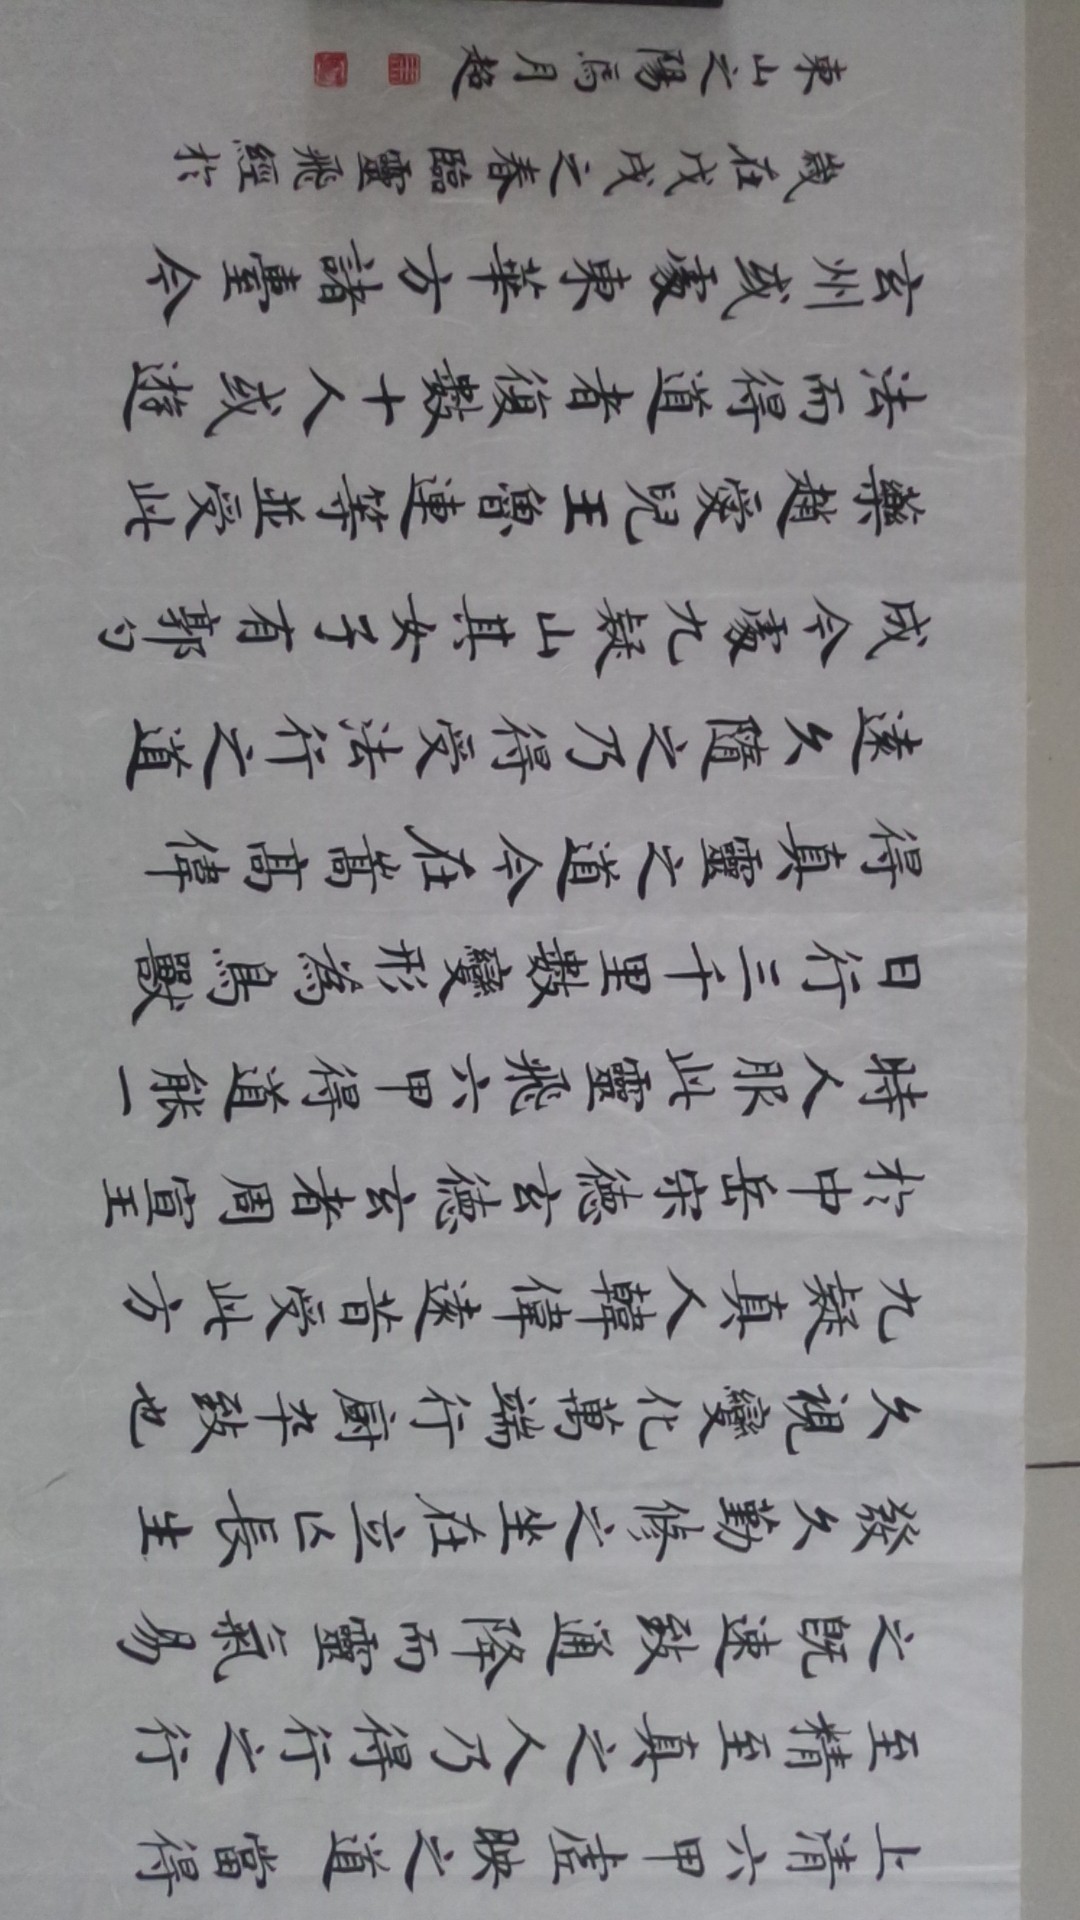 上清六甲虛映之道當得
至精至真之人乃得行之行
之既速致通降而靈氣易
發久勤修之坐在立亡長生
久視變化萬端行廚卒致也
九疑真人韓偉遠昔受此方
於中岳宋德玄德玄者周宣王
時人服此靈飛六甲得道能一
日行三千里數變形為鳥獸
得真靈之道今在嵩高偉
遠久隨之乃得受法行之道
成今處九疑山其女子有郭勺
藥趙愛兒王魯連等並受此
法而得道者復數十人或遊
玄州或處東華方諸臺今
歲在戊戌之春臨靈飛經於
東山之陽馬月超